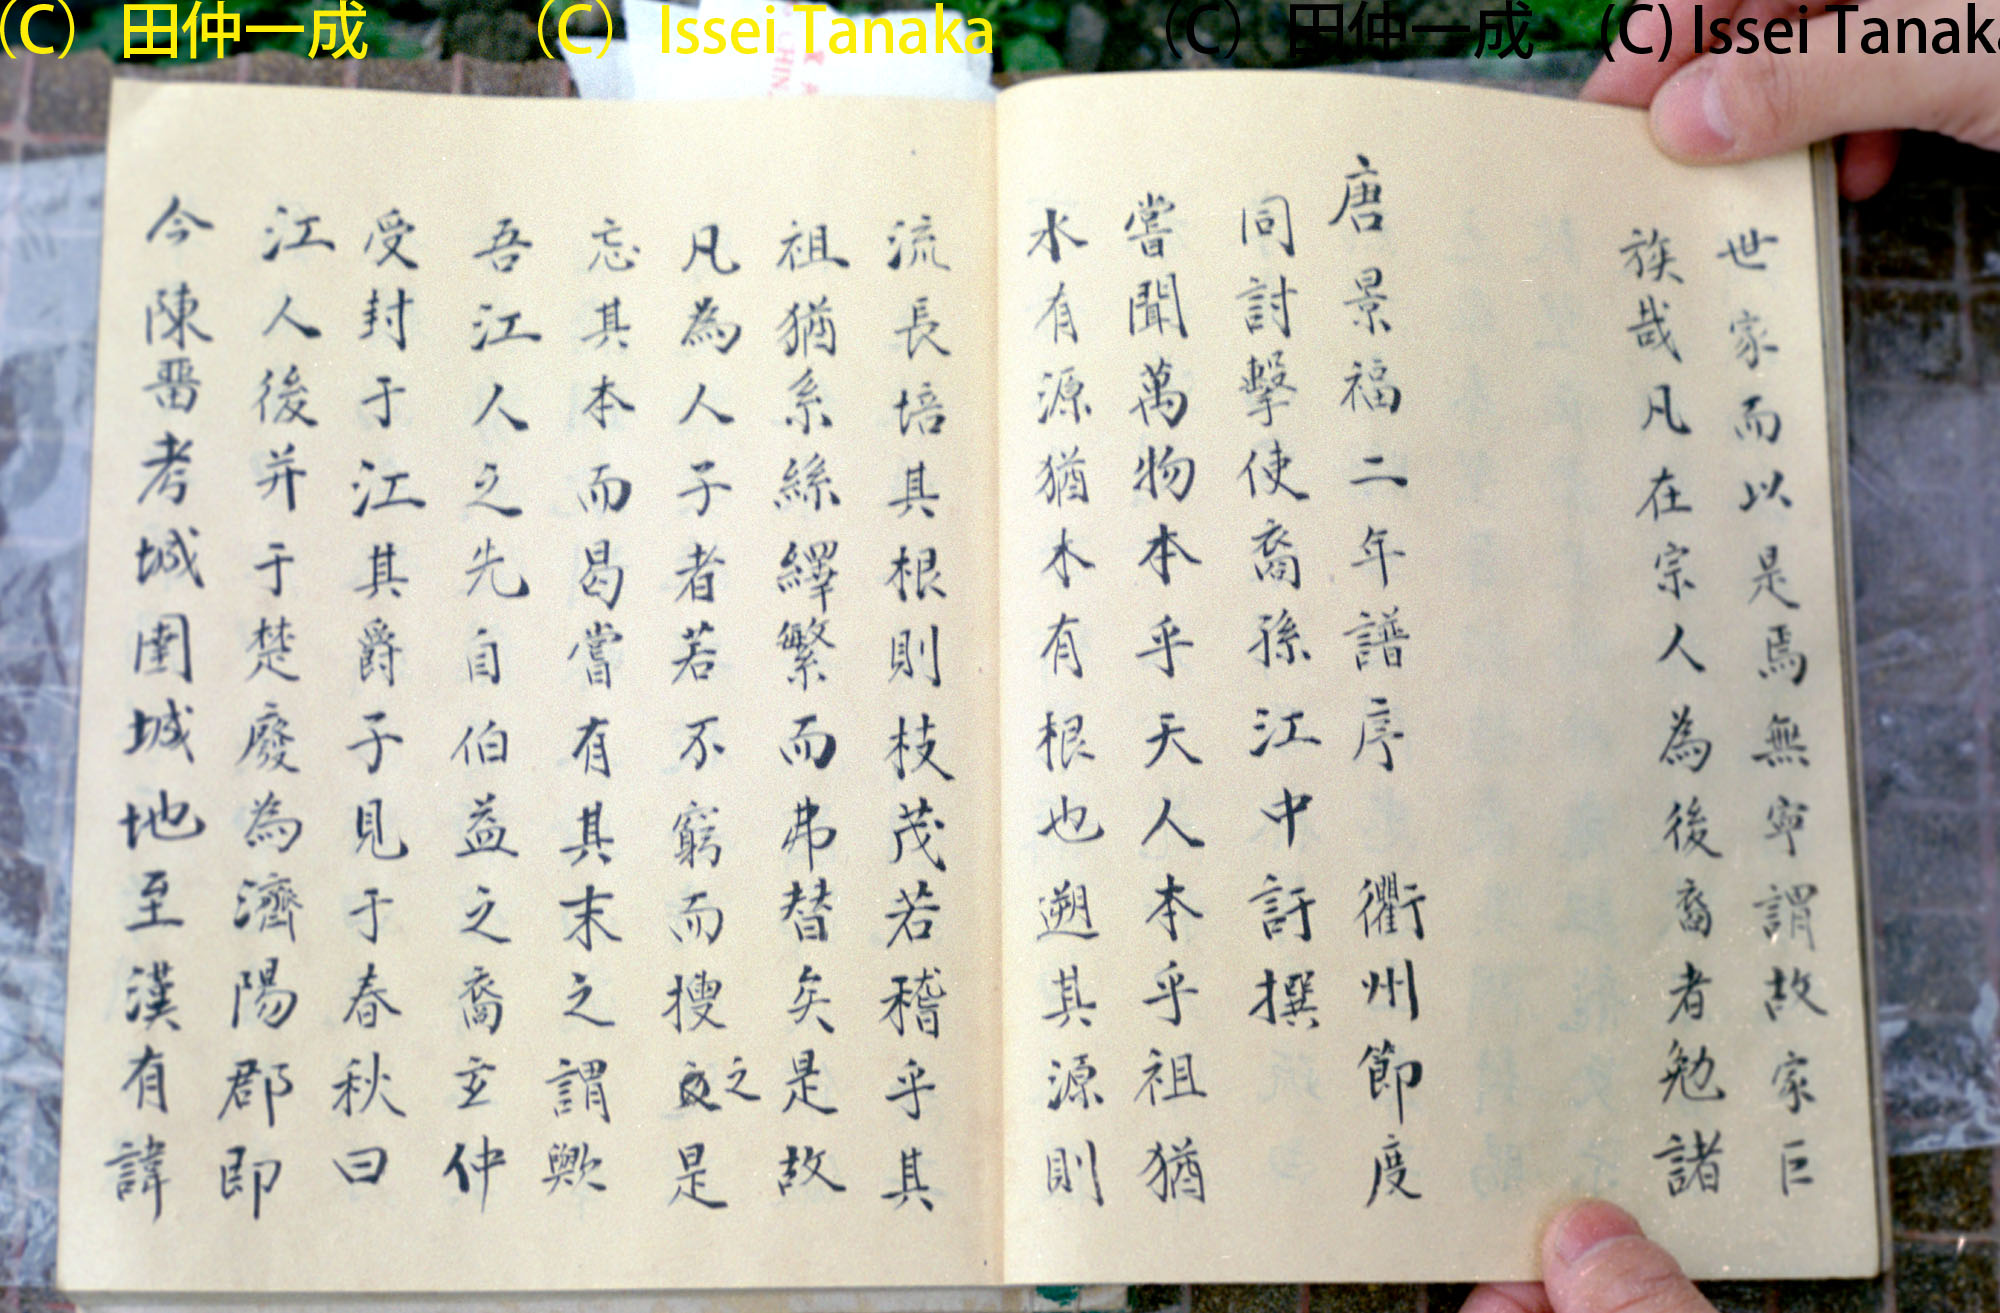 (C) 田仲一成 (C) Issei Tanaka (C) 田仲一成 (C) Issei Tanaka
世家而以是焉無寧謂故家巨
族哉凡在宗人為後裔者勉諸
唐景福二年譜序 衢州節度
同討擊使裔孫江中訏撰
嘗聞萬物本乎天人本乎祖猶
水有源猶木有根也遡其源則
流長培其根則枝茂若稽乎其
祖猶系絲繹繁而弗替矣是故
凡為人子者若不窮而搜之是
忘其本而曷嘗有其末之謂歟
吾江人之先自伯益之裔玄仲
受封于江其爵子見于春秋曰
江人後并于楚廢為濟陽郡即
今陳畱考城圉城地至漢有諱